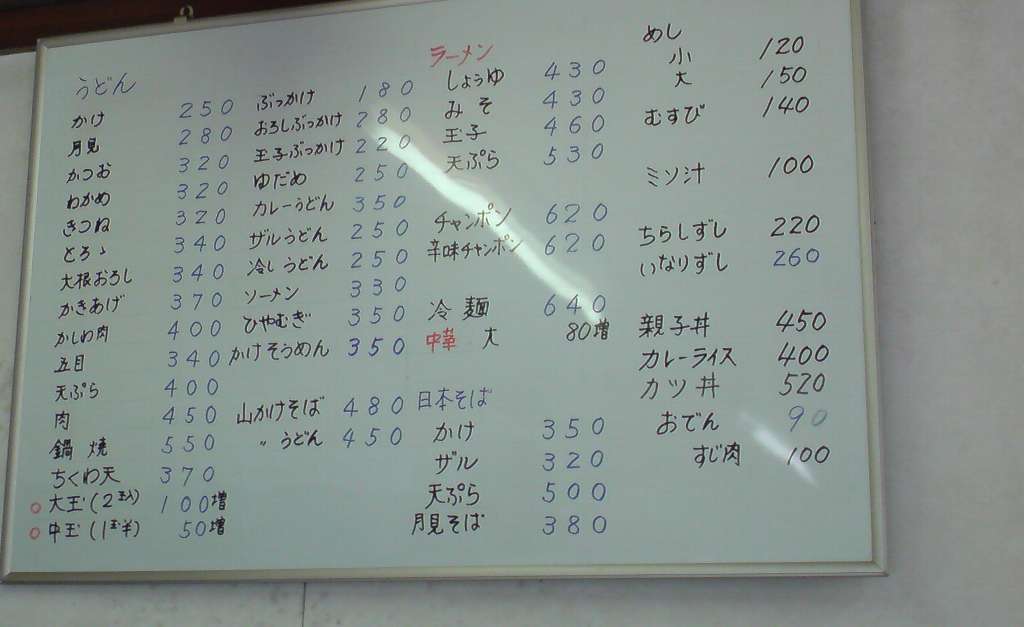 うどん
かけ 250
月見 280
かつお 320
わかめ 320
きつね 320
とろゝ 340
大根おろし 340
かきあげ 370
かしわ肉 400
五目 340
天ぷら 400
肉 450
鍋焼 550
ちくわ天 370
○大玉(2玉入) 100増
○中玉(1玉半) 50増
ぶっかけ 180
おろしぶっかけ 280
玉子ぶっかけ 220
ゆだめ 250
カレーうどん 350
ザルうどん 250
冷しうどん 250
ソーメン 330
ひやむぎ 350
かけそうめん 350
山かけそば 480
〃うどん 450
ラーメン
しょうゆ 430
みそ 430
玉子 460
天ぷら 530
チャンポン 620
辛味チャンポン 620
冷麺 640
中華 大 80増
日本そば
かけ 350
ザル 320
天ぷら 500
月見そば 380
めし
小 120
大 150
むすび 140
ミソ汁 100
ちらしずし 220
いなりずし 260
親子丼 450
カレーライス 400
カツ丼 520
おでん 90
すじ肉 100